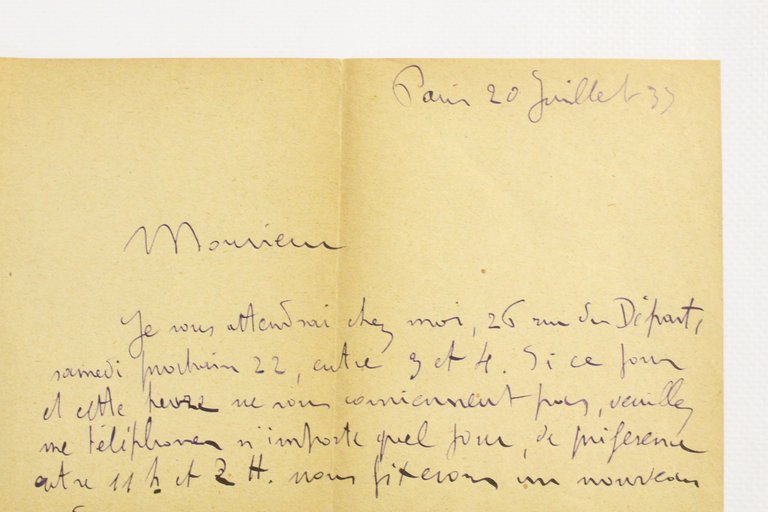 Paris 20 Juillet 33
Monsieur
Je vous attendrai chez moi, 26 rue du Départ,
samedi prochain 22, entre 3 et 4. Si ce jour
et cette heure ne vous conviennent pas, veuillez
me téléphoner n'importe quel jour, de préférence
entre 11 h et 2 H. nous fixerons un nouveau